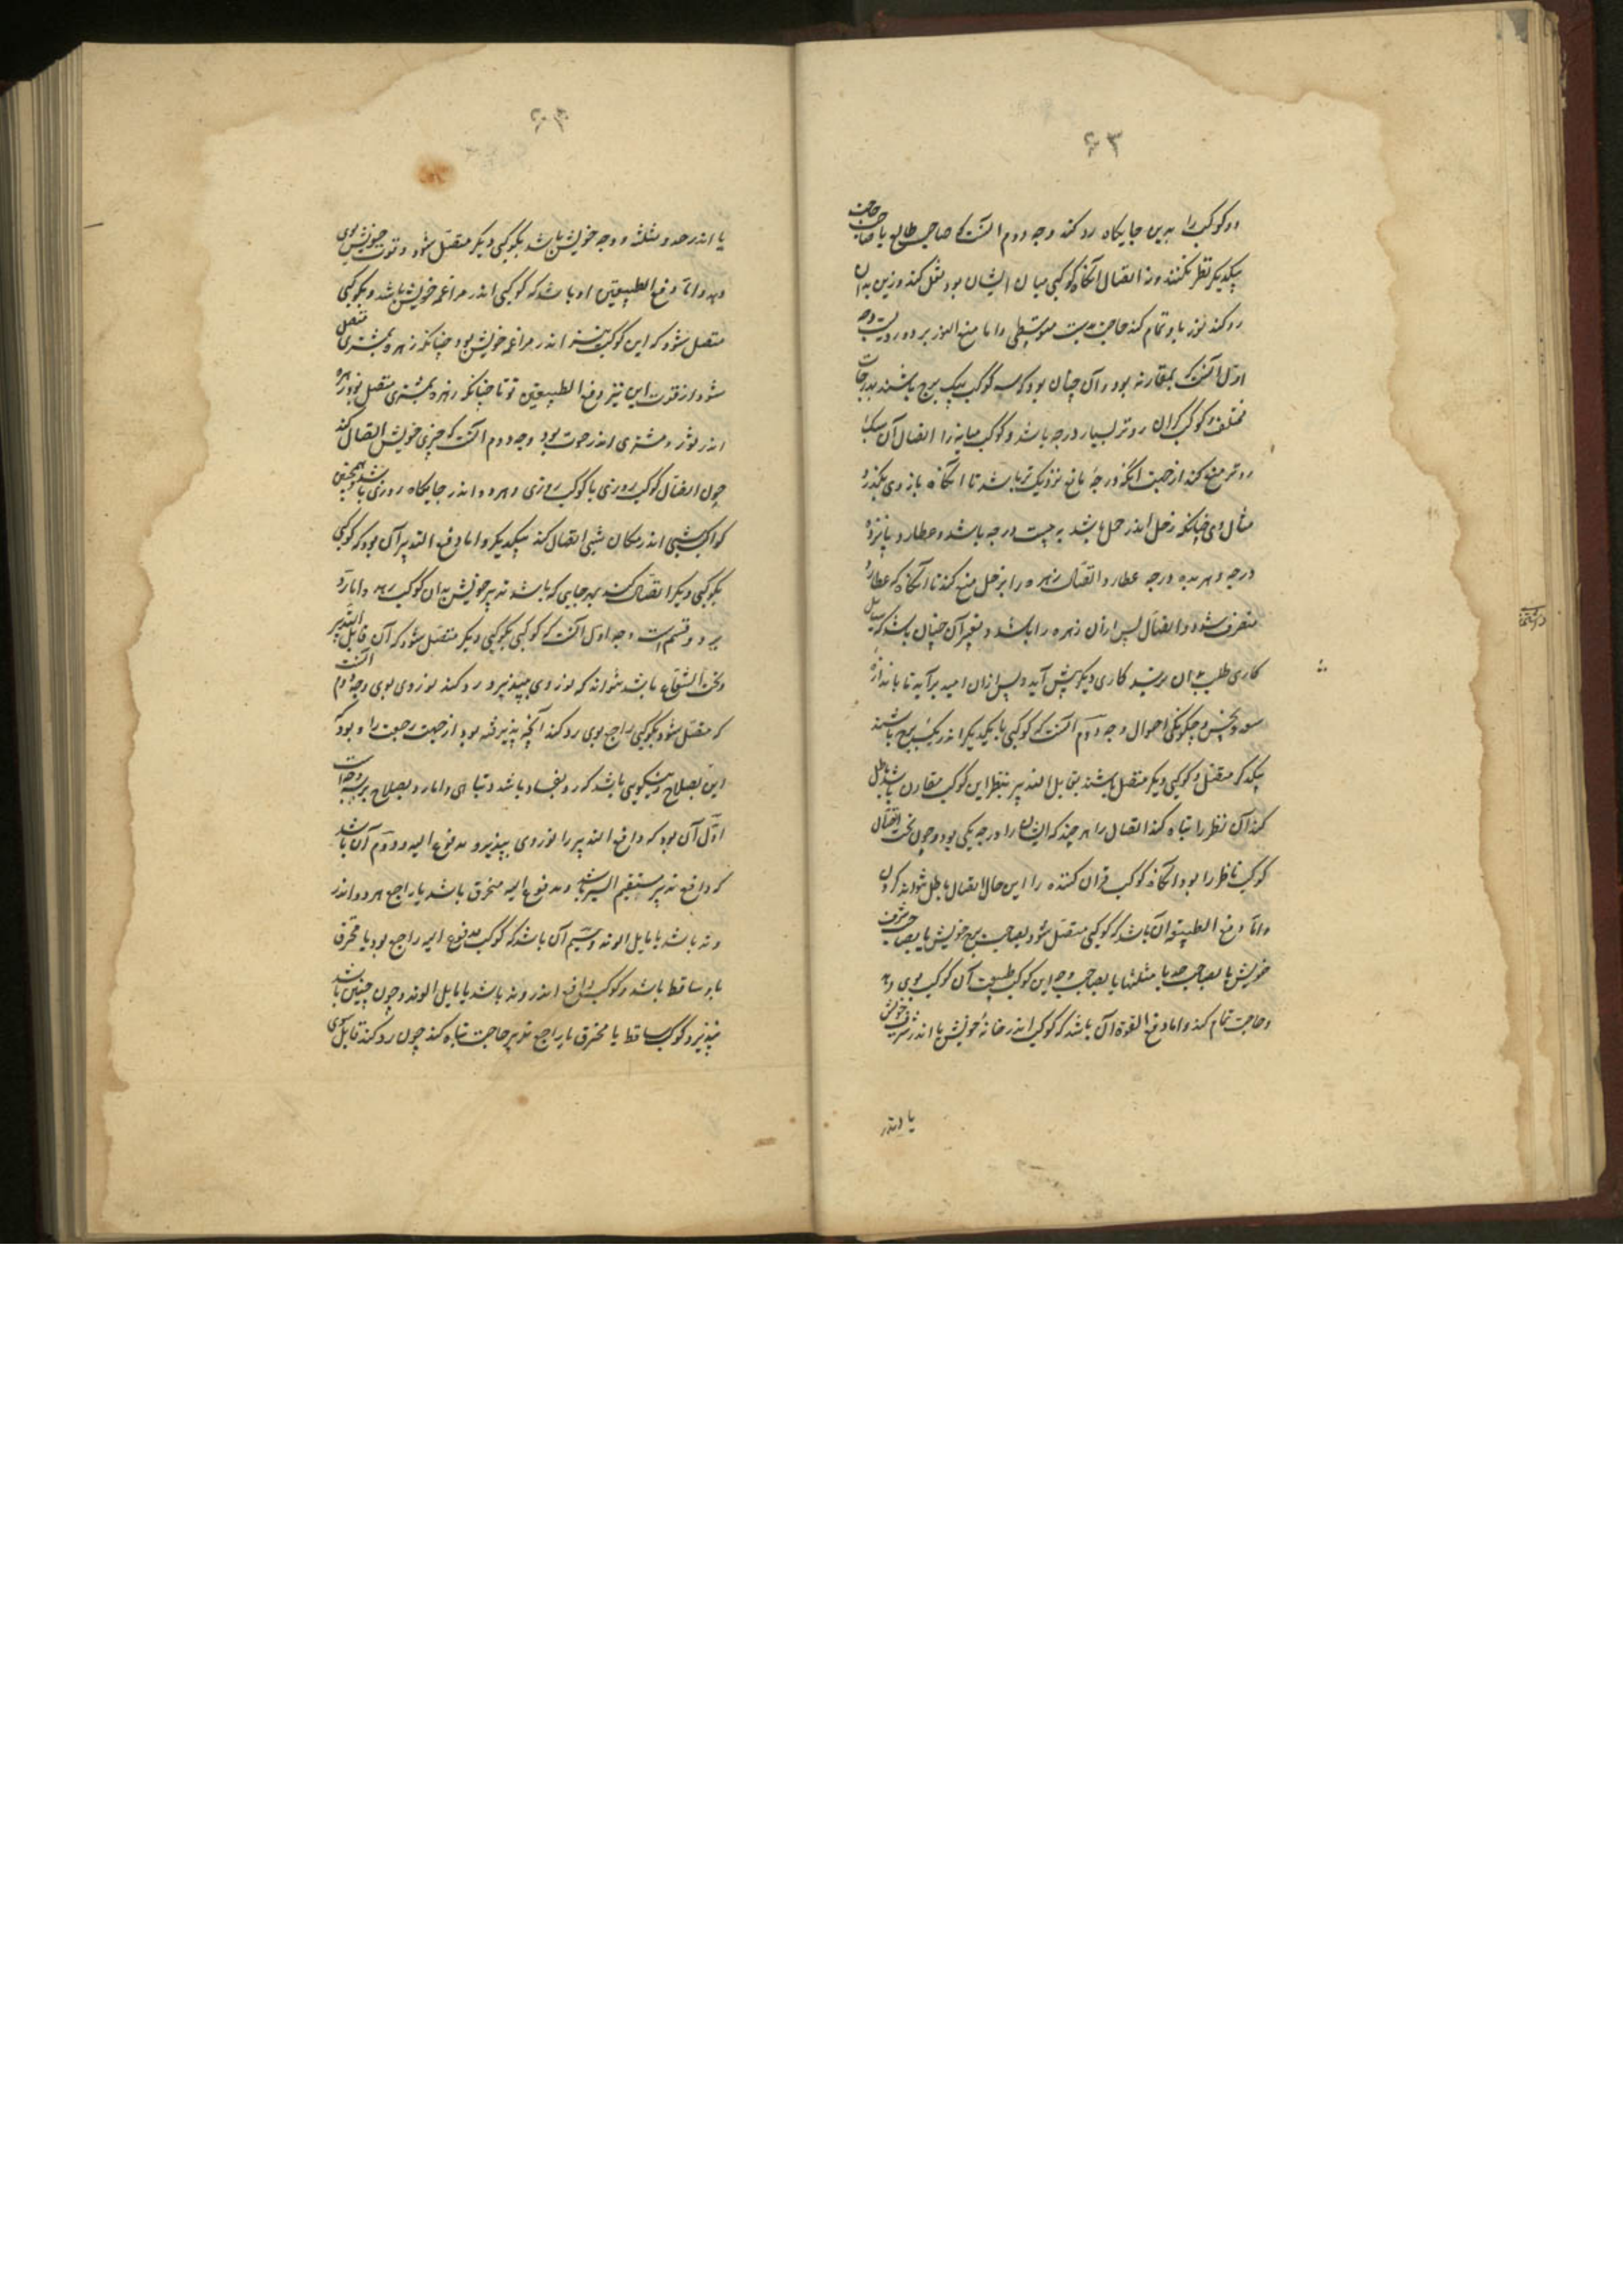 ۶۳
دو کوکب را بدین جایگاه رد کند وجه دوم آنست که صاحب طالع با صاحب حاجت
بیکدیگر نظر نکنند و نه اتصال آنگاه کوکبی میان ایشان بود نقل کند و زین بدان
رد کند نور باو تمام کند حاجت بدست متوسطی و اما منع النور بر دو رویست وجه
اول آنست که بمقارنه بود و آن چنان بود که سه کوکب بیک برج باشند بدرجات
مختلف و کوکب گران روتر بسیار درجه باشد و کوکب میانه را اتصال آن سبک
روتر منع کند از جهت آنکه درجهٔ مانع نزدیک تر باشد تا آنگاه باز وی بگذرد
مثال وی چنانکه زحل اندر حمل باشد به بیست درجه باشد و عطارد پانزده
درجه و زهره بده درجه عطارد اتصال زهره را بزحل منع کند تا آنگاه که عطارد
منصرف شود و اتصال پس ازان زهره را باشد و تعبیر آن چنان باشد که سایل
کاری طلب بدان نرسد کاری دیگر پیش آید و پس ازان امید برآید تا باندازه
سعد و نحس و چگونگی احوال وجه دوم آنست که کوکبی با یکدیگر اندر یک برج باشند
یکدیگر متصل و کوکبی دیگر متصل باشند بقابل التدبیر بنظر این کوکب مقارن باشد باطل
کند آن نظر را تباه کند اتصال را هر چند که ایشان را درجه یکی بود و چون نخست اتصال
کوکب ناظر را بود آنگاه کوکب قران کننده را این حال اتصال باطل نتواند کردن
و اما دفع الطبیعه آن باشد که کوکبی متصل شود بصاحب برج خویش یا بصاحب شرف
خویش یا بصاحب حد یا مثلثه یا بصاحب وجه این کوکب طبیعت آن کوکب بوی دهد
و حاجت تمام کند و اما دفع القوة آن باشد که کوکب اندر خانهٔ خویش یا اندر شرف خویش
یا اندر
۶۴
یا اندر حد و مثلثه و وجه خویش باشد بکوکبی دیگر متصل شود و قوت خویش بوی
دهد و اما دفع الطبیعتین او باشد که کوکبی اندر مزاعمه خویش باشد و بکوکبی
متصل شود که این کوکب نیز اندر مزاعمه خویش بود چنانکه زهره بمشتری متصل
شود از قوت این نیز دفع الطبیعتین قوتا چنانکه زهره بمشتری متصل بود زهره
اندر ثور و مشتری اندر حوت بود وجه دوم آنست که چیزی خویش اتصال کند
چون اتصال کوکب روزی با کوکب روزی و هر دو اندر جایگاه روزی باشد و همچنین
کواکب شبی اندر مکان شبی اتصال کند بیکدیگر و اما دفع التدبیر آن بود که کوکبی
بکوکبی دیگر اتصال کند بهر جایی که باشد تدبیر خویش بدان کوکب دهد و اما رد
بر دو قسم است وجه اول آنست که کوکبی بکوکبی دیگر متصل شود که آن قابل التدبیر
و تحت الشعاع باشد نتواند که نور وی بپذیرد و رد کند نور وی بوی وجه دوم آنست
که متصل شود بکوکبی راجع بوی رد کند آنچه پذیرفته بود از جهت رجعت را و بود که
این بصلاح و نیکویی باشد که رد بفساد باشد و تباهی و اما رد بصلاح بر سه وجه است
اول آن بود که دافع التدبیر را نور وی بپذیرد مدفوع الیه و دوم آن باشد
که دافع تدبیر مستقیم السیر باشد و مدفوع الیه محترق باشد یا راجع هر دو اندر
وتد باشد یا مایل الوتد و سیم آن باشد که کوکب مدفوع الیه راجع بود یا محترق
یا ساقط باشد و کوکب دافع اندر وتد باشد یا مایل الوتد و چون چنین باشد
بپذیرد کوکب ساقط یا محترق یا راجع تدبیر حاجت تباه کند چون رد کند قابل سوی